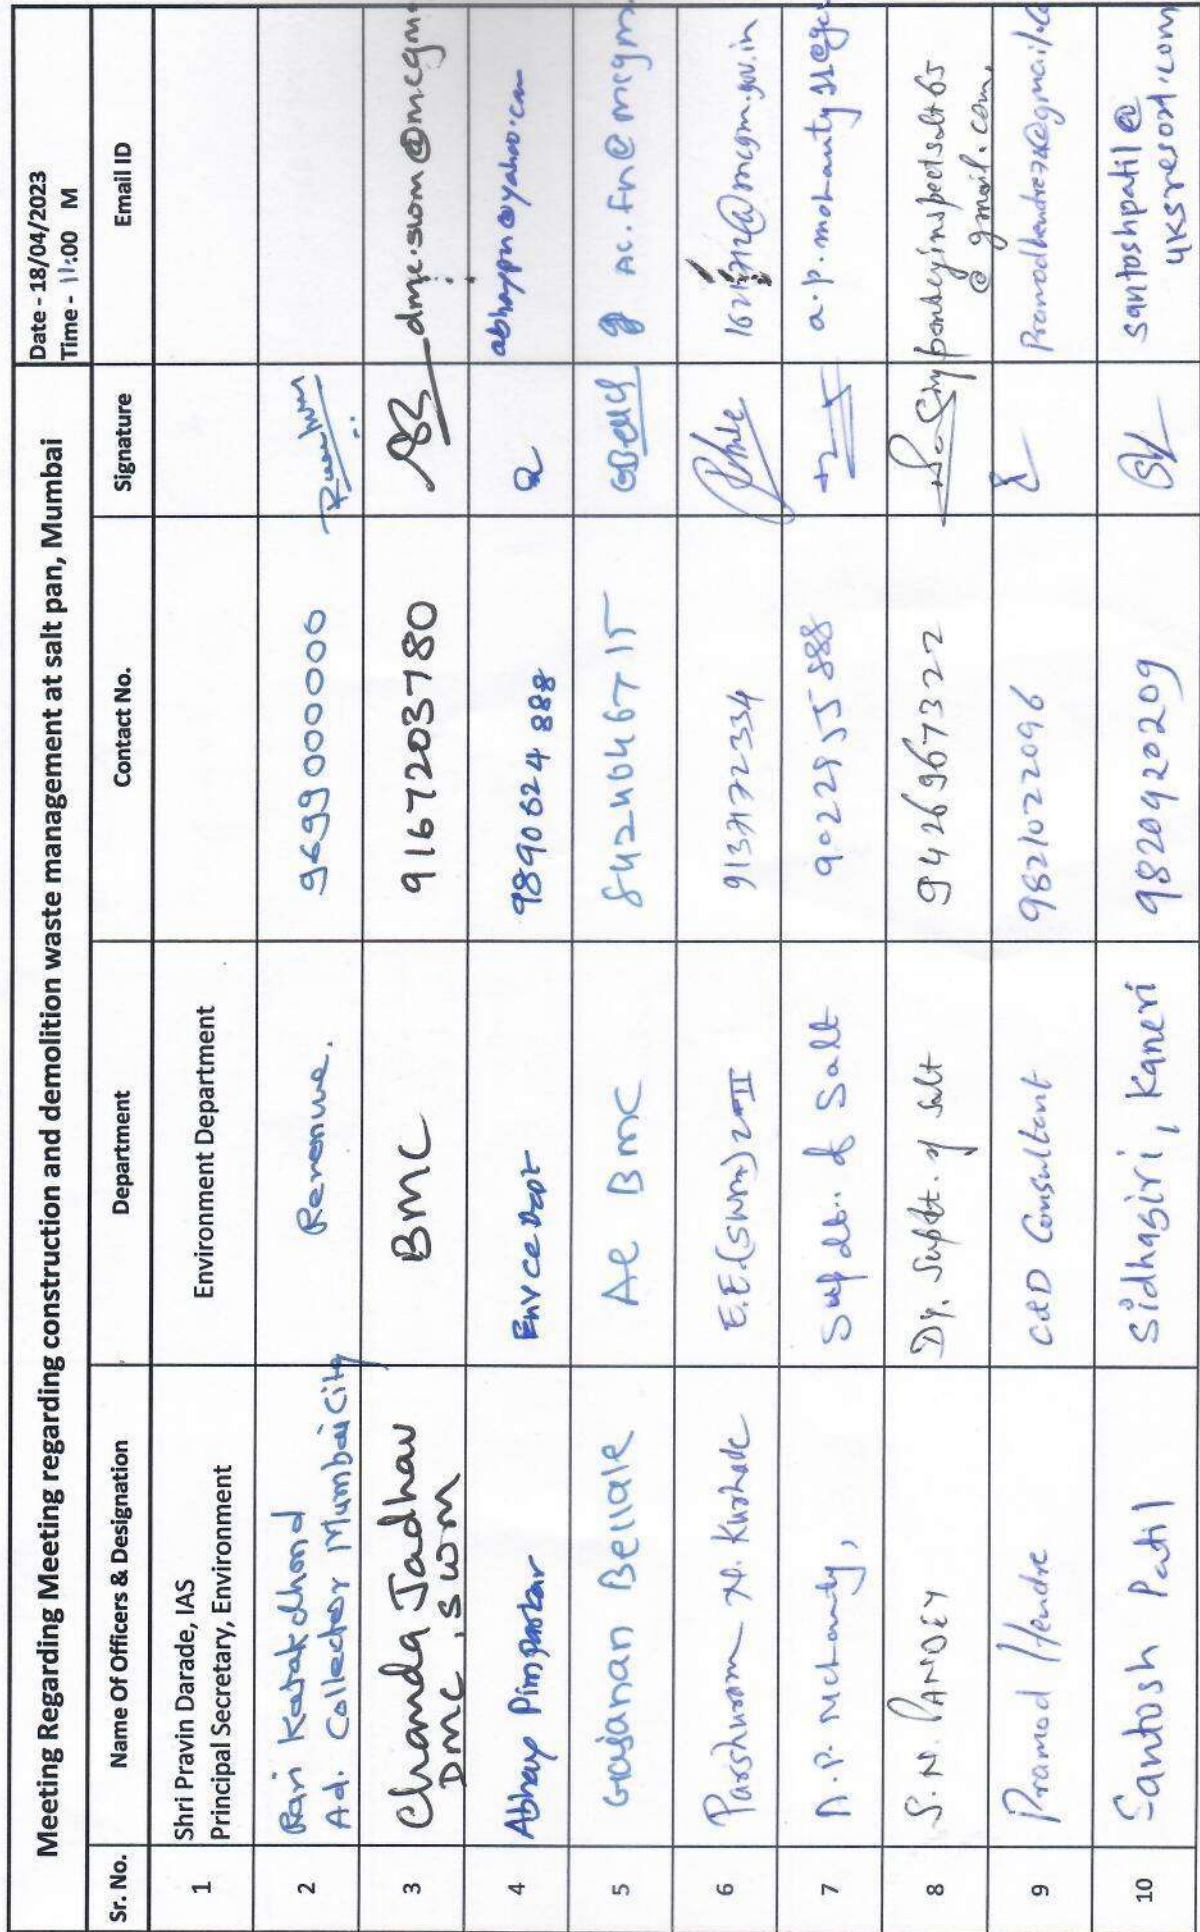 Meeting Regarding Meeting regarding construction and demolition waste management at salt pan, Mumbai
Date - 18/04/2023
Time - 11:00 M
Sr. No. Name Of Officers & Designation Department Contact No. Signature Email ID
1 Shri Pravin Darade, IAS
Principal Secretary, Environment
Environment Department
2 Ravi Katakdhond
Ad. Collector Mumbai City
Revenue. 9699000000
3 Chanda Jadhav
DMC, SWM
BMC 9167203780 dmc.swm@mcgm.
4 Abhay Pimparkar Env CC Dept 9890624888 abhaypn@yahoo.com
5 Gajanan Bellale AE BMC 8424046715 ac.fn@mcgm.
6 Parshuram N. Kurhade E.E.(SWM) 9137172334 @mcgm.gov.in
7 A.P. Mohanty, Supdt. of Salt 9022955888 a.p.mohanty
8 S.N. PANDEY Dy. Supdt. of Salt 9426967322 pandeyinspectsalt65
@gmail.com,
9 Pramod Hendre C&D Consultant 9821022096
10 Santosh Patil Sidhagiri, Kaneri 9820920209 santoshpatil@
4ksresort.com